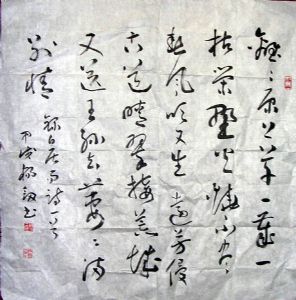 離〻原上草一歲一
枯榮野火燒不盡
春風吹又生遠芳侵
古道晴翠接荒城
又送王孫去萋〻滿
別情
錄白居易詩一首
丙戌書